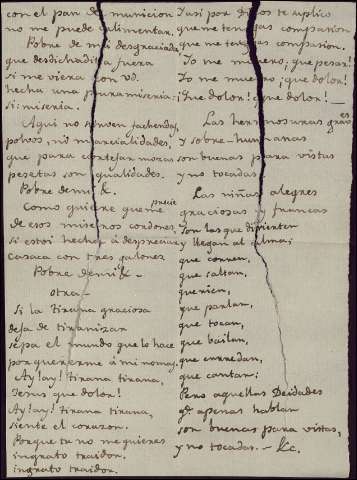 con el pan de municion
no me puede alimentar.
Pobre de mi desgraciada,
que desdichadita fuera
si me viera con Vd.
hecha una pura miseria:
si: miseria.
Aqui no sirven fachendas,
polvos, ni marcialidades,
que para cortejar mozas
pesetas son qualidades.
Pobre de mi &.
Como quiere que me precie
de esos miseros cordones
si estoi hecha á despreciar
casaca con tres galones
Pobre de mi &.
otra
Si la tirana graciosa
deja de tiranizar
sepa el mundo que lo hace
por quererme á mi no mas.
Ay! ay! tirana, tirana,
Jesus que dolor!
Ay! ay! tirana tirana,
siente el corazon.
Porque tu no me quieres
ingrato traidor.
ingrato traidor.
Y asi por Dios te suplico
que me tengas compasion
que me tengas compasion.
Yo me muero, que pesar!
Yo me muero; que dolor!
¡Que dolor! ¡que dolor!
Las hermosuras graves
y sobre-humanas
son buenas para vistas
y no tocadas.
Las niñas alegres
graciosas y francas
son las que divierten
y llegan al alma;
que corren,
que saltan,
que rien,
que parlan,
que tocan,
que bailan,
que enredan,
que cantan:
Pero aquellas Deidades
qe. apenas hablan
son buenas para vistas,
y no tocadas. &c.